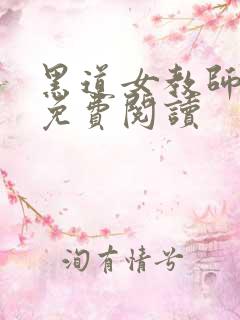 黑道女教師
免費閱讀
洵有情兮